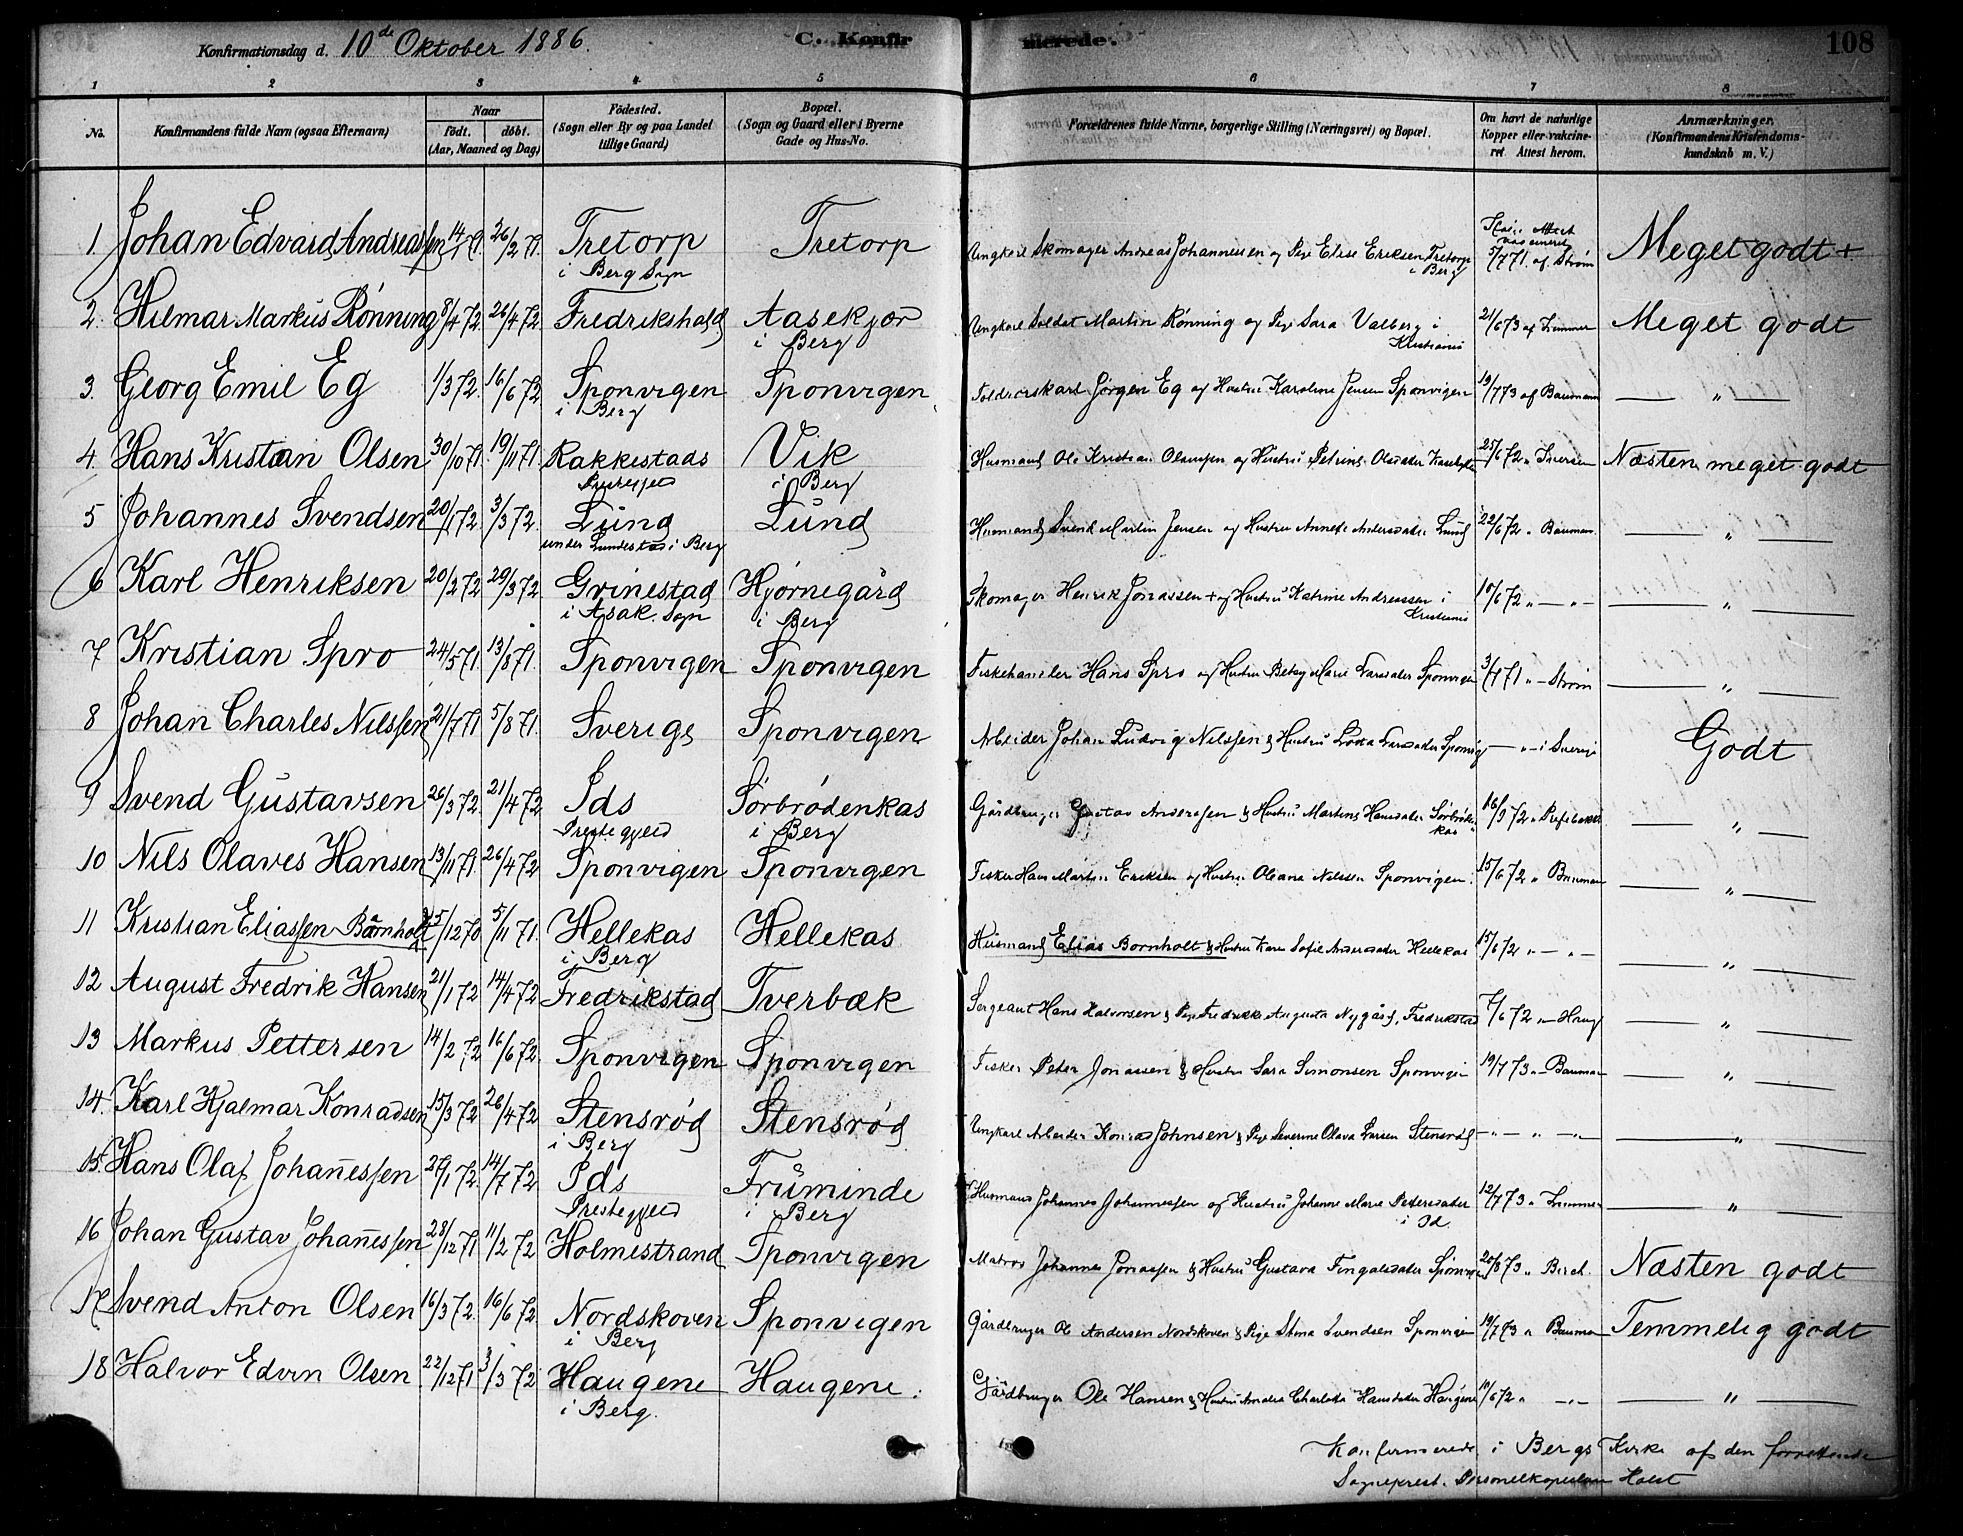 Konfirmationsdag d. 10de Oktober 1886. C. Konfirmerede. 108
1 2 3 4 5 6 7 8
No. Konfirmandens fulde Navn (ogsaa Efternavn) Naar født. døbt. (Aar, Maaned og Dag) Fødested. (Sogn eller By og paa Landet tillige Gaard) Bopæl. (Sogn og Gaard eller i Byerne Gade og Hus-No. Forældrenes fulde Navne, borgerlige Stilling (Næringsvei) og Bopæl. Om havt de naturlige Kopper eller vakcineret Attest herom. Anmærkninger. (Konfirmandens Kristendomskundskab m. V.)
1 Johan Edvard Andreassen 26/2 71. Tretorp i Berg Sogn Tretorp Ungkarl Skomager Andreas Johannessen og Pige Elise Eriksen Tretorp i Berg 5/7 71. af Strøm Meget godt +
2. Hilmar Markus Rönning 8/4 72. 26/4 72. Fredrikshald Aasekjær i Berg Ungkarl Soldat Martin Rönning og Pige Sara Valberg i Kristiania 21/6 73 af Meget godt
3. Georg Emil Eg 1/3 72. 16/6 72. Sponvigen i Berg Sponvigen Jörgen Eg og Hustru Karoline Jensen Sponvigen 19/7 73 af Baumann — " —
4. Hans Kristian Olsen 30/10 71. 19/11 71. Rakkestads Prestegjeld Vik i Berg Husmand Ole Kristian og Hustru Petrine Olsdater 25/6 72 " Iversen Næsten meget godt
5 Johannes Svendsen 20/1 72. 3/3 72. Lund under Lundestad i Berg Lund Husmand Svend Martin Jensen og Hustru Annette Andersdater Lund 22/6 72 " Bauman. — " —
6 Karl Henriksen 20/2 72 29/3 72 Grinestad i Asak. Sogn Hjørnegård i Berg Skomager Henrik Jonassen + og Hustru Katrine Andreassen i Kristiania 10/6 72 " — " — — " —
7 Kristian Spro 24/5 71. 13/8 71. Sponvigen Sponvigen Fiskehandler Hans Spro og Hustru Betsy Marie Larsdater Sponvigen 3/7 71 " — Strøm — " —
8 Johan Charles Nilssen 21/7 71 5/8 71. Sverige Sponvigen Arbeider Johan Ludvig Nilssen & Hustru Lovisa Larsdater Sponvig — " — i Sverige Godt
9 Svend Gustavsen 26/3 72. 21/4 72 Ids Prestegjeld Sörbrödenkas i Berg Gårdbruger Gustav Anderssen & Hustru Martine Hansdater Sörbröden kas 16/9 72 " Prestebakke — " —
10 Nils Olaves Hansen 13/11 71. 26/4 72 Sponvigen Sponvigen Fisker Hans Martin Eriksen og Hustru Oleana Nilsen Sponvigen. 15/6 72 " Bauman — " —
11 Kristian Eliassen Barnholt 25/12 70 5/11 71. Hellekas i Berg Hellekas Husmand Elias Bornholt & Hustru Karen Sofie Andersdater Hellekas 15/6 72 " — " — — " —
12 August Fredrik Hansen 21/1 72 14/4 72 Fredrikstad Tverbæk Sergeant Hans Halvorsen & Pige Fredrikke Augusta Nygård, Fredrikstad 7/6 72 " — Haug — " —
13 Markus Pettersen 14/2 72 16/6 72. Sponvigen Sponvigen Fisker Peter Jonassen & Hustru Sara Simonsen Sponvigen 19/7 73 " — Bauman — " —
14. Karl Hjalmar Konradsen 15/3 72 26/4 72 Stensröd i Berg Stensröd Ungkarl Arbeider Konrad Johnsen & Pige Severine Olava Larsen Stensröd — " — " — " — — " —
15. Hans Olaf Johañessen 27/1 72. 14/7 72 Ids Prestegjeld Früminde i Berg Husmand Johannes Johannessen og Hustru Johanne Marie Pedersdater i Id. 12/7 73 " — " —
16 Johan Gustav Johañessen 28/12 71 11/2 72 Holmestrand Sponvigen Matros Johannes Jonassen & Hustru Gustava Fingalsdater Sponvigen 20/8 73 " Birch. Næsten godt
17 Svend Anton Olsen 16/3 72. 16/6 72 Nordskoven i Berg Sponvigen Gårdbruger Ole Andersen Nordskoven & Pige Stina Svendsen Sponvigen 19/7 73 " Bauman Temmelig godt
18 Halvor Edvin Olsen 22/12 71 3/3 72 Haugene i Berg. Haugene. Gårdbruger Ole Hansen & Hustru Amalia Charlotta Hansdater Haugene 10/6 72 " — " — — " —
Konfirmerede i Bergs Kirke af den forrettende
Sogneprest. Personelkapellan Holst